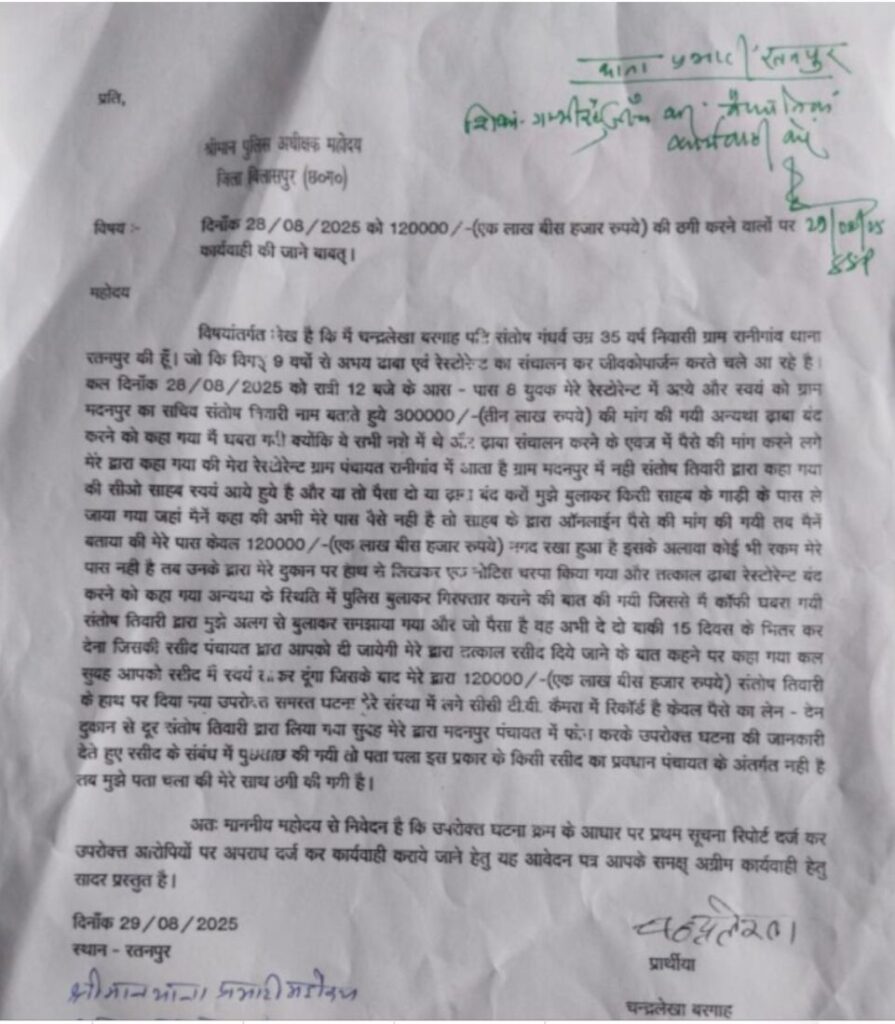 थाना प्रभारी रतनपुर
कार्यवाही करें
29/08/25
SSP
प्रति,
श्रीमान पुलिस अधीक्षक महोदय
जिला बिलासपुर (छ०ग०)
विषय :- दिनाँक 28/08/2025 को 120000/-(एक लाख बीस हजार रुपये) की ठगी करने वालों पर
कार्यवाही की जाने बाबत्।
महोदय
विषयांतर्गत लेख है कि मैं चन्द्रलेखा बरगाह पति संतोष गंधर्व उम्र 35 वर्ष निवासी ग्राम रानीगांव थाना
रतनपुर की हूँ। जो कि विगत् 9 वर्षो से अभय ढाबा एवं रेस्टोरेन्ट का संचालन कर जीवकोपार्जन करते चले आ रहे है।
कल दिनाँक 28/08/2025 को रात्री 12 बजे के आस - पास 8 युवक मेरे रेस्टोरेन्ट में आये और स्वयं को ग्राम
मदनपुर का सचिव संतोष तिवारी नाम बताते हुये 300000/-(तीन लाख रुपये) की मांग की गयी अन्यथा ढ़ाबा बंद
करने को कहा गया मैं घबरा गयी क्योंकि ये सभी नशे में थे और ढाबा संचालन करने के एवज में पैसे की मांग करने लगे
मेरे द्वारा कहा गया की मेरा रेस्टोरेन्ट ग्राम पंचायत रानीगांव में आता है ग्राम मदनपुर में नही संतोष तिवारी द्वारा कहा गया
की सीओ साहब स्वयं आये हुये है और या तो पैसा दो या ढ़ाबा बंद करों मुझे बुलाकर किसी साहब के गाड़ी के पास ले
जाया गया जहां मैनें कहा की अभी मेरे पास पैसे नही है तो साहब के द्वारा ऑनलाईन पैसे की मांग की गयी तब मैनें
बताया की मेरे पास केवल 120000/-(एक लाख बीस हजार रुपये) नगद रखा हुआ है इसके अलावा कोई भी रकम मेरे
पास नही है तब उनके द्वारा मेरे दुकान पर हाथ से लिखकर एक नोटिस चस्पा किया गया और तत्काल ढ़ाबा रेस्टोरेन्ट बंद
करने को कहा गया अन्यथा के स्थिति में पुलिस बुलाकर गिरफ्तार कराने की बात की गयी जिससे मैं कॉफी घबरा गयी
संतोष तिवारी द्वारा मुझे अलग से बुलाकर समझाया गया और जो पैसा है वह अभी दे दो बाकी 15 दिवस के भितर कर
देना जिसकी रसीद पंचायत द्वारा आपको दी जायेगी मेरे द्वारा तत्काल रसीद दिये जाने के बात कहने पर कहा गया कल
सुबह आपको रसीद मैं स्वयं लाकर दूंगा जिसके बाद मेरे द्वारा 120000/-(एक लाख बीस हजार रुपये) संतोष तिवारी
के हाथ पर दिया गया उपरोक्त समस्त घटना मेरे संस्था में लगे सीसी टी.वी. कैमरा में रिकॉर्ड है केवल पैसे का लेन - देन
दुकान से दूर संतोष तिवारी द्वारा लिया गया सुबह मेरे द्वारा मदनपुर पंचायत में फोन करके उपरोक्त घटना की जानकारी
देते हुए रसीद के संबंध में पुछताछ की गयी तो पता चला इस प्रकार के किसी रसीद का प्रवधान पंचायत के अंतर्गत नही है
तब मुझे पता चला की मेरे साथ ठगी की गगी है।
अतः माननीय महोदय से निवेदन है कि उपरोक्त घटना क्रम के आधार पर प्रथम सूचना रिपोर्ट दर्ज कर
उपरोक्त आरोपियों पर अपराध दर्ज कर कार्यवाही कराये जाने हेतु यह आवेदन पत्र आपके समक्ष अग्रीम कार्यवाही हेतु
सादर प्रस्तुत है।
दिनाँक 29/08/2025
स्थान - रतनपुर
चन्द्रलेखा
प्रार्थीया
श्रीमान थाना प्रभारी महोदय
चन्द्रलेखा बरगाह